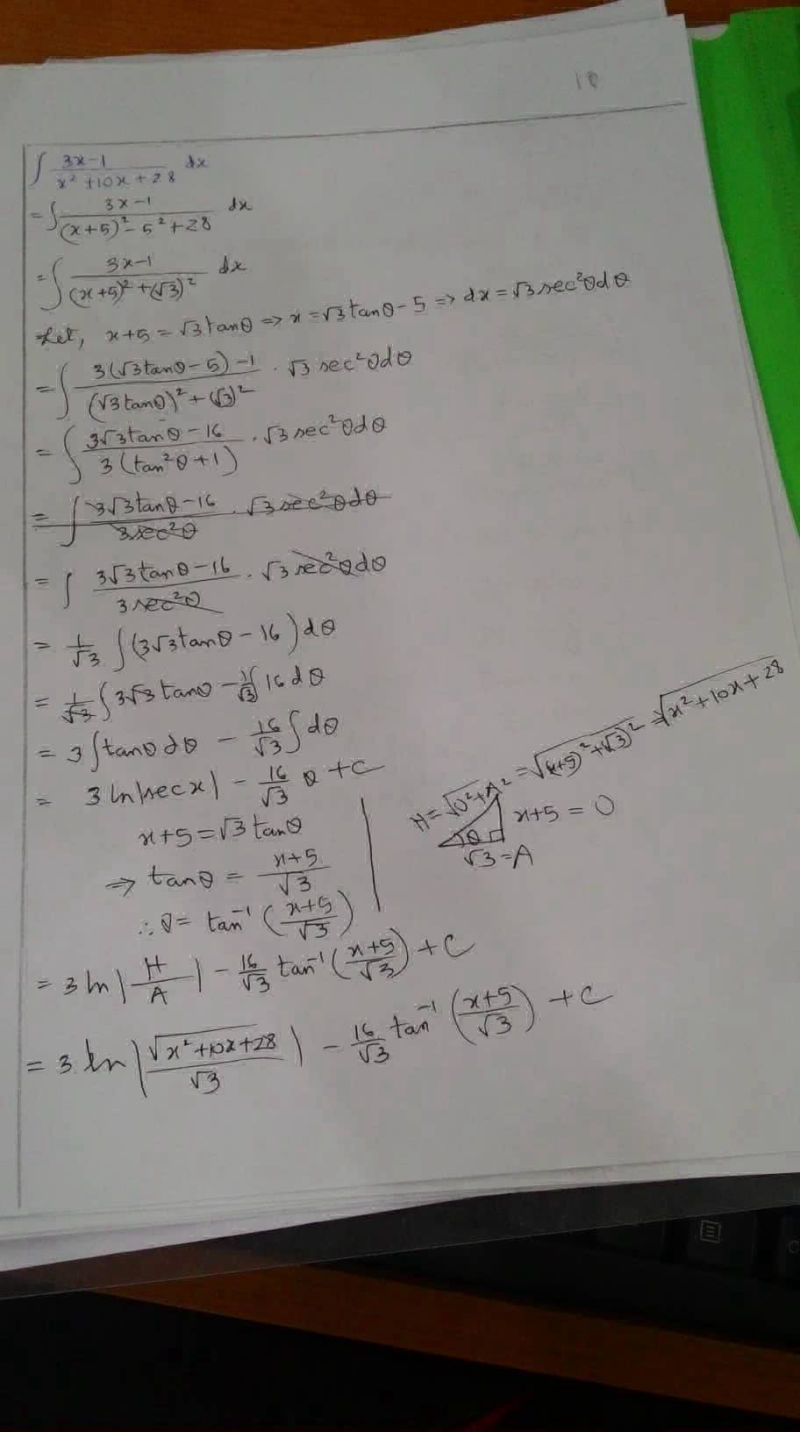 10
∫ (3x-1)/(x²+10x+28) dx
= ∫ (3x-1)/((x+5)²-5²+28) dx
= ∫ (3x-1)/((x+5)²+(√3)²) dx
Let, x+5 = √3 tanθ ⇒ x = √3 tanθ - 5 ⇒ dx = √3 sec²θ dθ
= ∫ (3(√3 tanθ - 5) - 1)/((√3 tanθ)²+(√3)²) · √3 sec²θ dθ
= ∫ (3√3 tanθ - 16)/(3(tan²θ+1)) · √3 sec²θ dθ
= ∫ (3√3 tanθ - 16)/(3 sec²θ) · √3 sec²θ dθ
= ∫ (3√3 tanθ - 16)/(3 sec²θ) · √3 sec²θ dθ
= 1/√3 ∫ (3√3 tanθ - 16) dθ
= 1/√3 ∫ 3√3 tanθ - 1/√3 ∫ 16 dθ
= 3 ∫ tanθ dθ - 16/√3 ∫ dθ
= 3 ln|sec x| - 16/√3 θ + C
x+5 = √3 tanθ
⇒ tanθ = (x+5)/√3
∴ θ = tan⁻¹ ((x+5)/√3)
H = √(O²+A²) = √((x+5)²+(√3)²) = √(x²+10x+28)
θ
x+5 = O
√3 = A
= 3 ln |H/A| - 16/√3 tan⁻¹ ((x+5)/√3) + C
= 3 ln |√(x²+10x+28)/√3| - 16/√3 tan⁻¹ ((x+5)/√3) + C